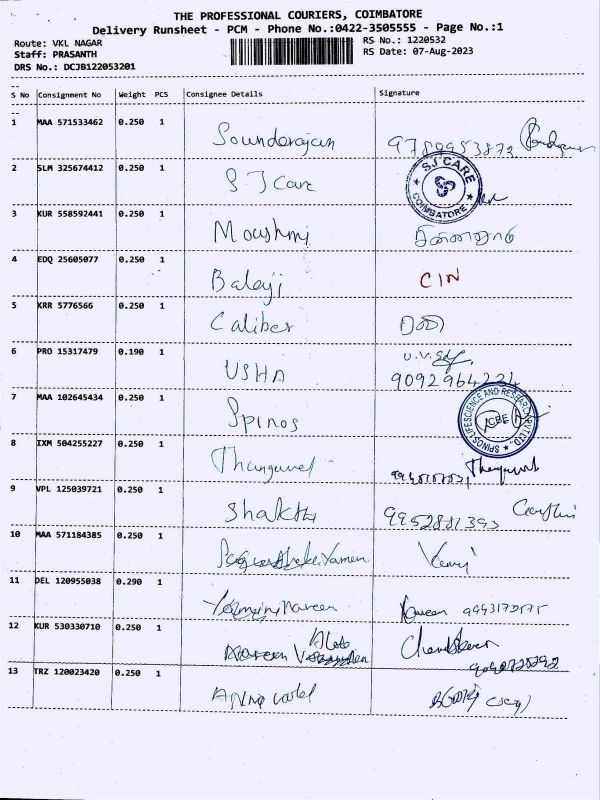 THE PROFESSIONAL COURIERS, COIMBATORE
Delivery Runsheet - PCM - Phone No.:0422-3505555 - Page No.:1
Route: VKL NAGAR
RS No.: 1220532
Staff: PRASANTH
RS Date: 07-Aug-2023
DRS No.: DCJB122053201
S No Consignment No Weight PCS Consignee Details Signature
1 MAA 571533462 0.250 1 Sounderajan 9789953873
2 SLM 325674412 0.250 1 S J Care
SJ CARE
COIMBATORE
3 KUR 558592441 0.250 1 Moushmi
4 EDQ 25605077 0.250 1 Balaji CIN
5 KRR 5776566 0.250 1 Caliber
6 PRO 15317479 0.190 1 USHA
9092964224
7 MAA 102645434 0.250 1 Spinos
SPINOS LIFE SCIENCE AND RESEARCH PVT LTD.
CBE
8 IXM 504255227 0.250 1 Thanguvel
9 VPL 125039721 0.250 1 Shakthi 9952881393
10 MAA 571184385 0.250 1
11 DEL 120955038 0.290 1 Naveen
12 KUR 530330710 0.250 1
13 TRZ 120023420 0.250 1